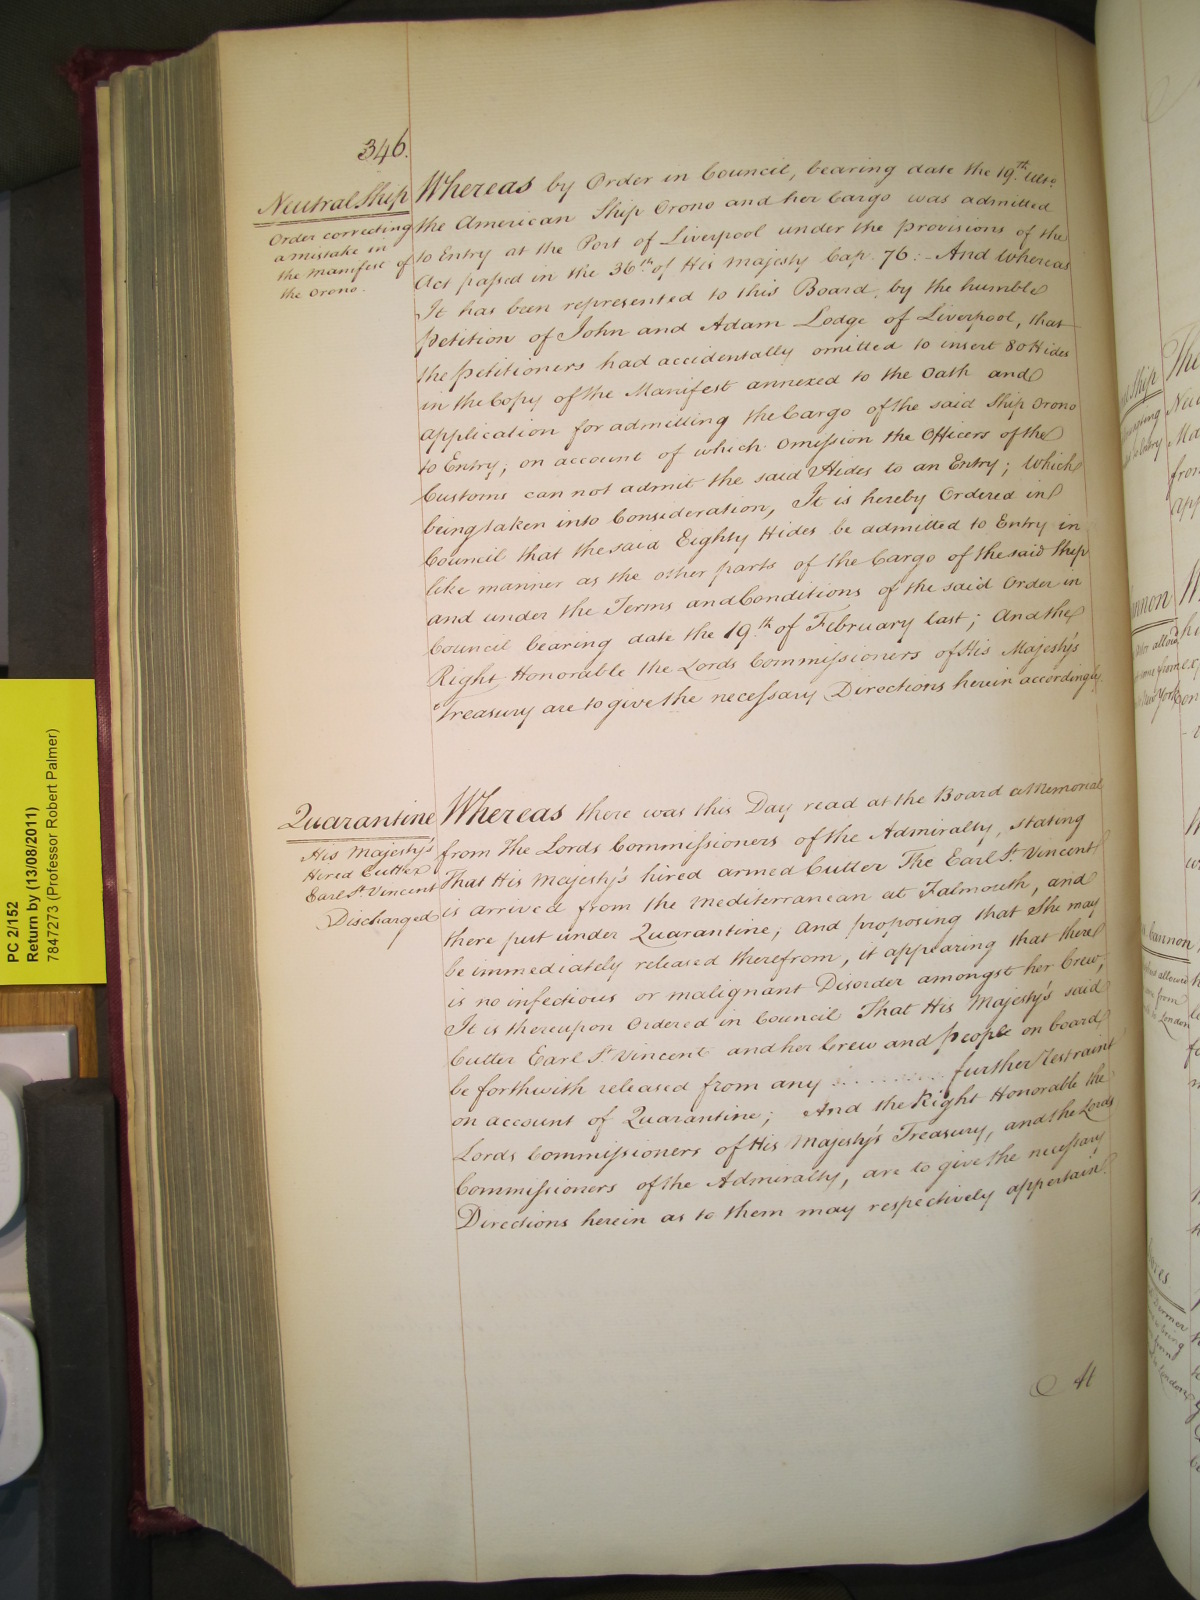 346.
Neutral Ship
Order correcting
a mistake in
the Manifest of
the Orono.
Whereas by Order in Council, bearing date the 19th. Ulto.
the American Ship Orono and her Cargo was admitted
to Entry at the Port of Liverpool under the provisions of the
Act passed in the 36th of His Majesty Cap. 76:- And Whereas
It has been represented to this Board, by the humble
petition of John and Adam Lodge of Liverpool, that
the petitioners had accidentally omitted to insert 80 Hides
in the Copy of the Manifest annexed to the Oath and
application for admitting the Cargo of the said Ship Orono
to Entry; on account of which Omission the Officers of the
Customs can not admit the said Hides to an Entry; Which
being taken into Consideration, It is hereby Ordered in
Council that the said Eighty Hides be admitted to Entry in
like manner as the other parts of the Cargo of the said Ship
and under the Terms and Conditions of the said Order in
Council bearing date the 19th. of February last; And the
Right Honorable the Lords Commissioners of His Majesty's
Treasury are to give the necessary Directions herein accordingly.
Quarantine
His Majesty's
Hired Cutter
Earl St. Vincent
Discharged
Whereas there was this Day read at the Board a Memorial
from The Lords Commissioners of the Admiralty, stating
That His Majesty's hired armed Cutter The Earl St. Vincent
is arrived from the Mediterranean at Falmouth, and
there put under Quarantine; and proposing that She may
be immediately released therefrom, it appearing that there
is no infectious or malignant Disorder amongst her Crew,
It is thereupon Ordered in Council That His Majesty's said
Cutter Earl St. Vincent and her Crew and people on board
be forthwith released from any .......... further restraint
on account of Quarantine; And the Right Honorable the
Lords Commissioners of His Majesty's Treasury, and the Lords
Commissioners of the Admiralty, are to give the necessary
Directions herein as to them may respectively appertain.
At
PC 2/152
Return by (13/08/2011)
7847273 (Professor Robert Palmer)